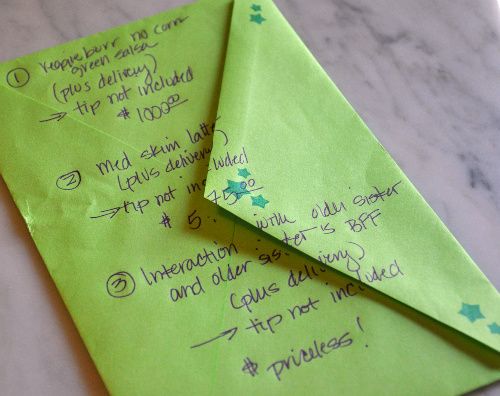 ① veggie burr no corn
green salsa
(plus delivery)
→ tip not included
$ 1000.00
② med skim latte
(plus delivery)
→ tip not included
$ 575.00
③ Interaction with older sister
and older sister is BFF
(plus delivery)
→ tip not included
$ priceless!